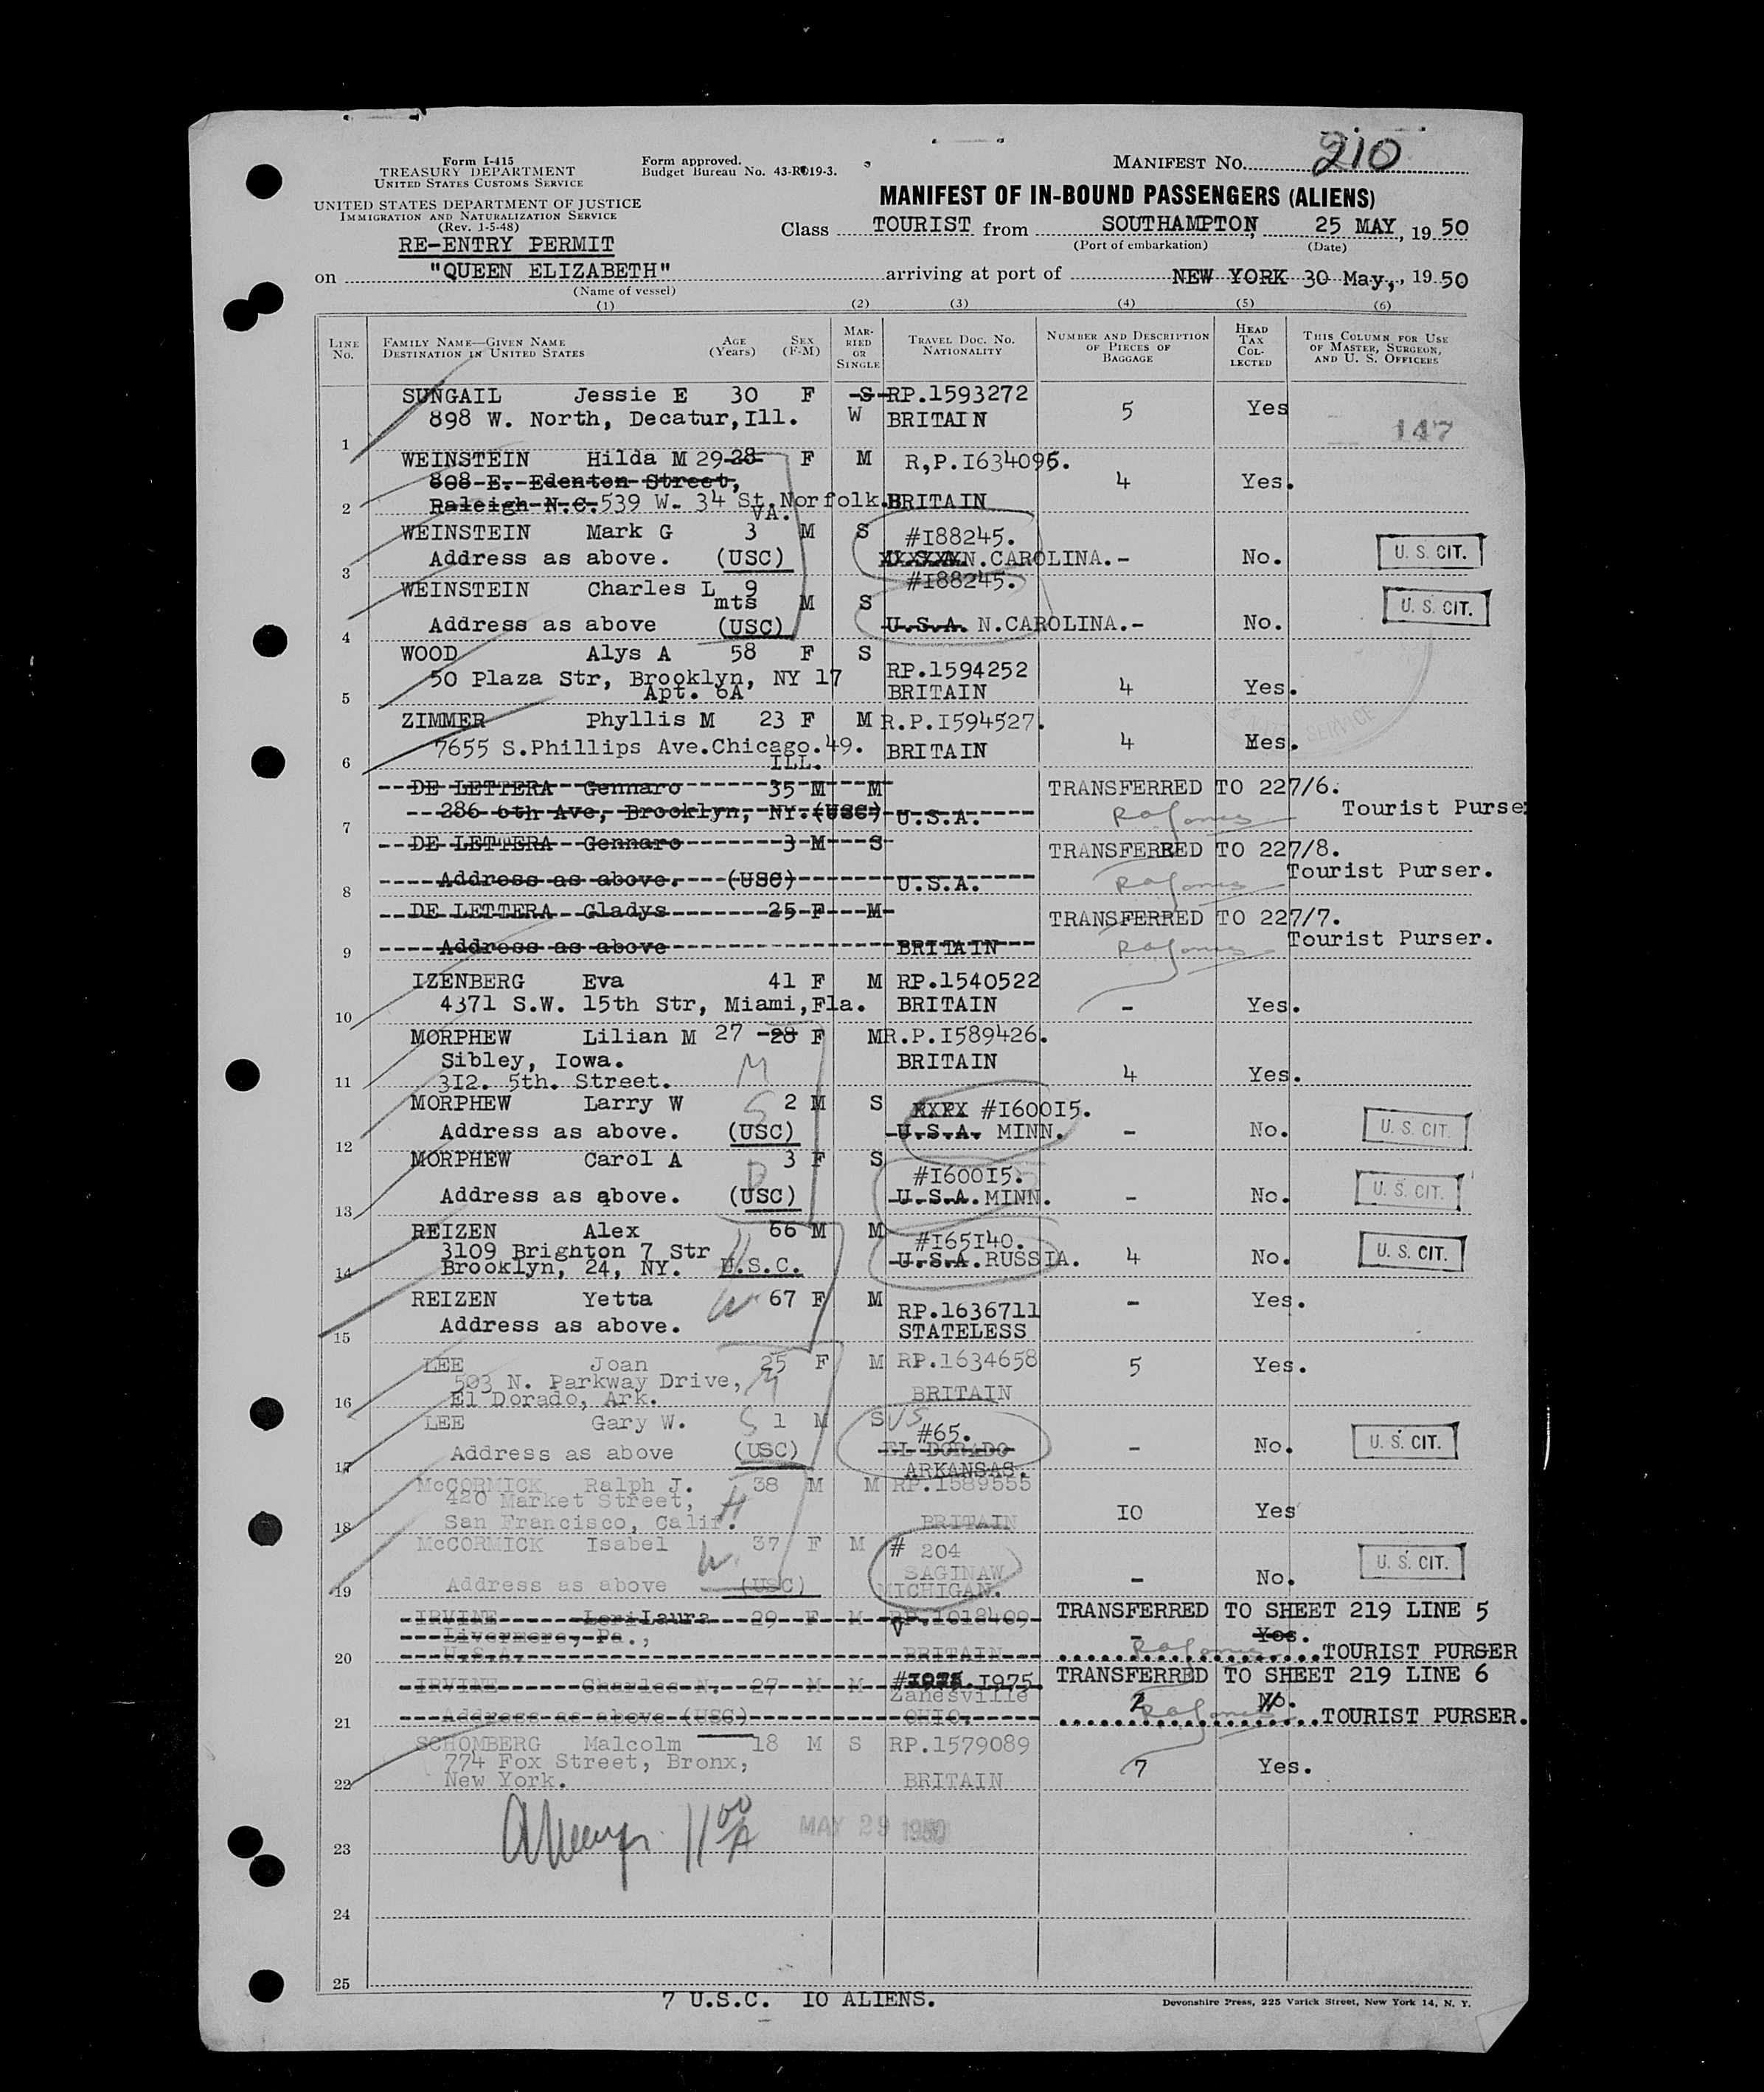 Form I-415
TREASURY DEPARTMENT
UNITED STATES CUSTOMS SERVICE
UNITED STATES DEPARTMENT OF JUSTICE
IMMIGRATION AND NATURALIZATION SERVICE
(Rev. 1-5-48)
RE-ENTRY PERMIT
Form approved.
Budget Bureau No. 43-R019-3.
MANIFEST No. 210
MANIFEST OF IN-BOUND PASSENGERS (ALIENS)
Class TOURIST from SOUTHAMPTON, 25 MAY, 19 50
(Port of embarkation) (Date)
on "QUEEN ELIZABETH" arriving at port of NEW YORK 30 May,, 19 50
(Name of vessel)
(1) (2) (3) (4) (5) (6)
LINE No. FAMILY NAME—GIVEN NAME DESTINATION IN UNITED STATES AGE (Years) SEX (F-M) MARRIED OR SINGLE TRAVEL DOC. NO. NATIONALITY NUMBER AND DESCRIPTION OF PIECES OF BAGGAGE HEAD TAX COLLECTED THIS COLUMN FOR USE OF MASTER, SURGEON, AND U. S. OFFICERS
SUNGAIL Jessie E 30 F S RP.1593272
1 898 W. North, Decatur,Ill. W BRITAIN 5 Yes 147
WEINSTEIN Hilda M 29 28 F M R,P.I634095.
808 E. Edenton Street, 4 Yes.
2 Raleigh N.C. 539 W. 34 St.Norfolk. BRITAIN
VA.
WEINSTEIN Mark G 3 M S #I88245.
3 Address as above. (USC) N.CAROLINA. - No. U. S. CIT.
WEINSTEIN Charles L 9 mts M S #I88245.
4 Address as above (USC) U.S.A. N.CAROLINA. - No. U. S. CIT.
WOOD Alys A 58 F S RP.1594252
5 50 Plaza Str, Brooklyn, NY 17 BRITAIN 4 Yes.
Apt. 6A
ZIMMER Phyllis M 23 F M R.P.I594527.
6 7655 S.Phillips Ave.Chicago.49. BRITAIN 4 Yes.
ILL.
SERVICE
DE LETTERA Gennaro 35 M M TRANSFERRED TO 227/6.
7 286 6th Ave, Brooklyn, NY.(USC) U.S.A. Tourist Purser
DE LETTERA Gennaro 3 M S TRANSFERRED TO 227/8.
8 Address as above. (USC) U.S.A. Tourist Purser.
DE LETTERA Gladys 25 F M TRANSFERRED TO 227/7.
9 Address as above BRITAIN Tourist Purser.
IZENBERG Eva 41 F M RP.1540522
10 4371 S.W. 15th Str, Miami,Fla. BRITAIN - Yes.
MORPHEW Lilian M 27 28 F M R.P.I589426.
Sibley, Iowa. M BRITAIN
11 3I2. 5th. Street. 4 Yes.
MORPHEW Larry W S 2 M S #I600I5.
12 Address as above. (USC) U.S.A. MINN. - No. U. S. CIT.
MORPHEW Carol A D 3 F S #I600I5.
13 Address as above. (USC) U.S.A. MINN. - No. U. S. CIT.
REIZEN Alex 66 M M #I65I40.
3109 Brighton 7 Str H
14 Brooklyn, 24, NY. U.S.C. U.S.A. RUSSIA. 4 No. U. S. CIT.
REIZEN Yetta W 67 F M RP.1636711 - Yes.
15 Address as above. STATELESS
LEE Joan 25 F M RP.1634658 5 Yes.
503 N. Parkway Drive, M
16 El Dorado, Ark. BRITAIN
LEE Gary W. S 1 M S US #65.
17 Address as above (USC) EL DORADO - No. U. S. CIT.
ARKANSAS.
McCORMICK Ralph J. 38 M M RP.1589555
420 Market Street, H IO Yes
18 San Francisco, Calif. BRITAIN
McCORMICK Isabel W. 37 F M # 204
SAGINAW
19 Address as above (USC) MICHIGAN. - No. U. S. CIT.
IRVINE Lori Laura 29 F M RP.1018409 TRANSFERRED TO SHEET 219 LINE 5
Livermore, Pa., - Yes.
20 U.S.A. BRITAIN TOURIST PURSER
IRVINE Charles N. 27 M M # I975 TRANSFERRED TO SHEET 219 LINE 6
Zanesville 2 No.
21 Address as above (USC) OHIO. TOURIST PURSER.
SCHOMBERG Malcolm 18 M S RP.1579089
774 Fox Street, Bronx, 7 Yes.
22 New York. BRITAIN
11 00 A MAY 29 1950
23
24
25
7 U.S.C. IO ALIENS.
Devonshire Press, 225 Varick Street, New York 14, N. Y.